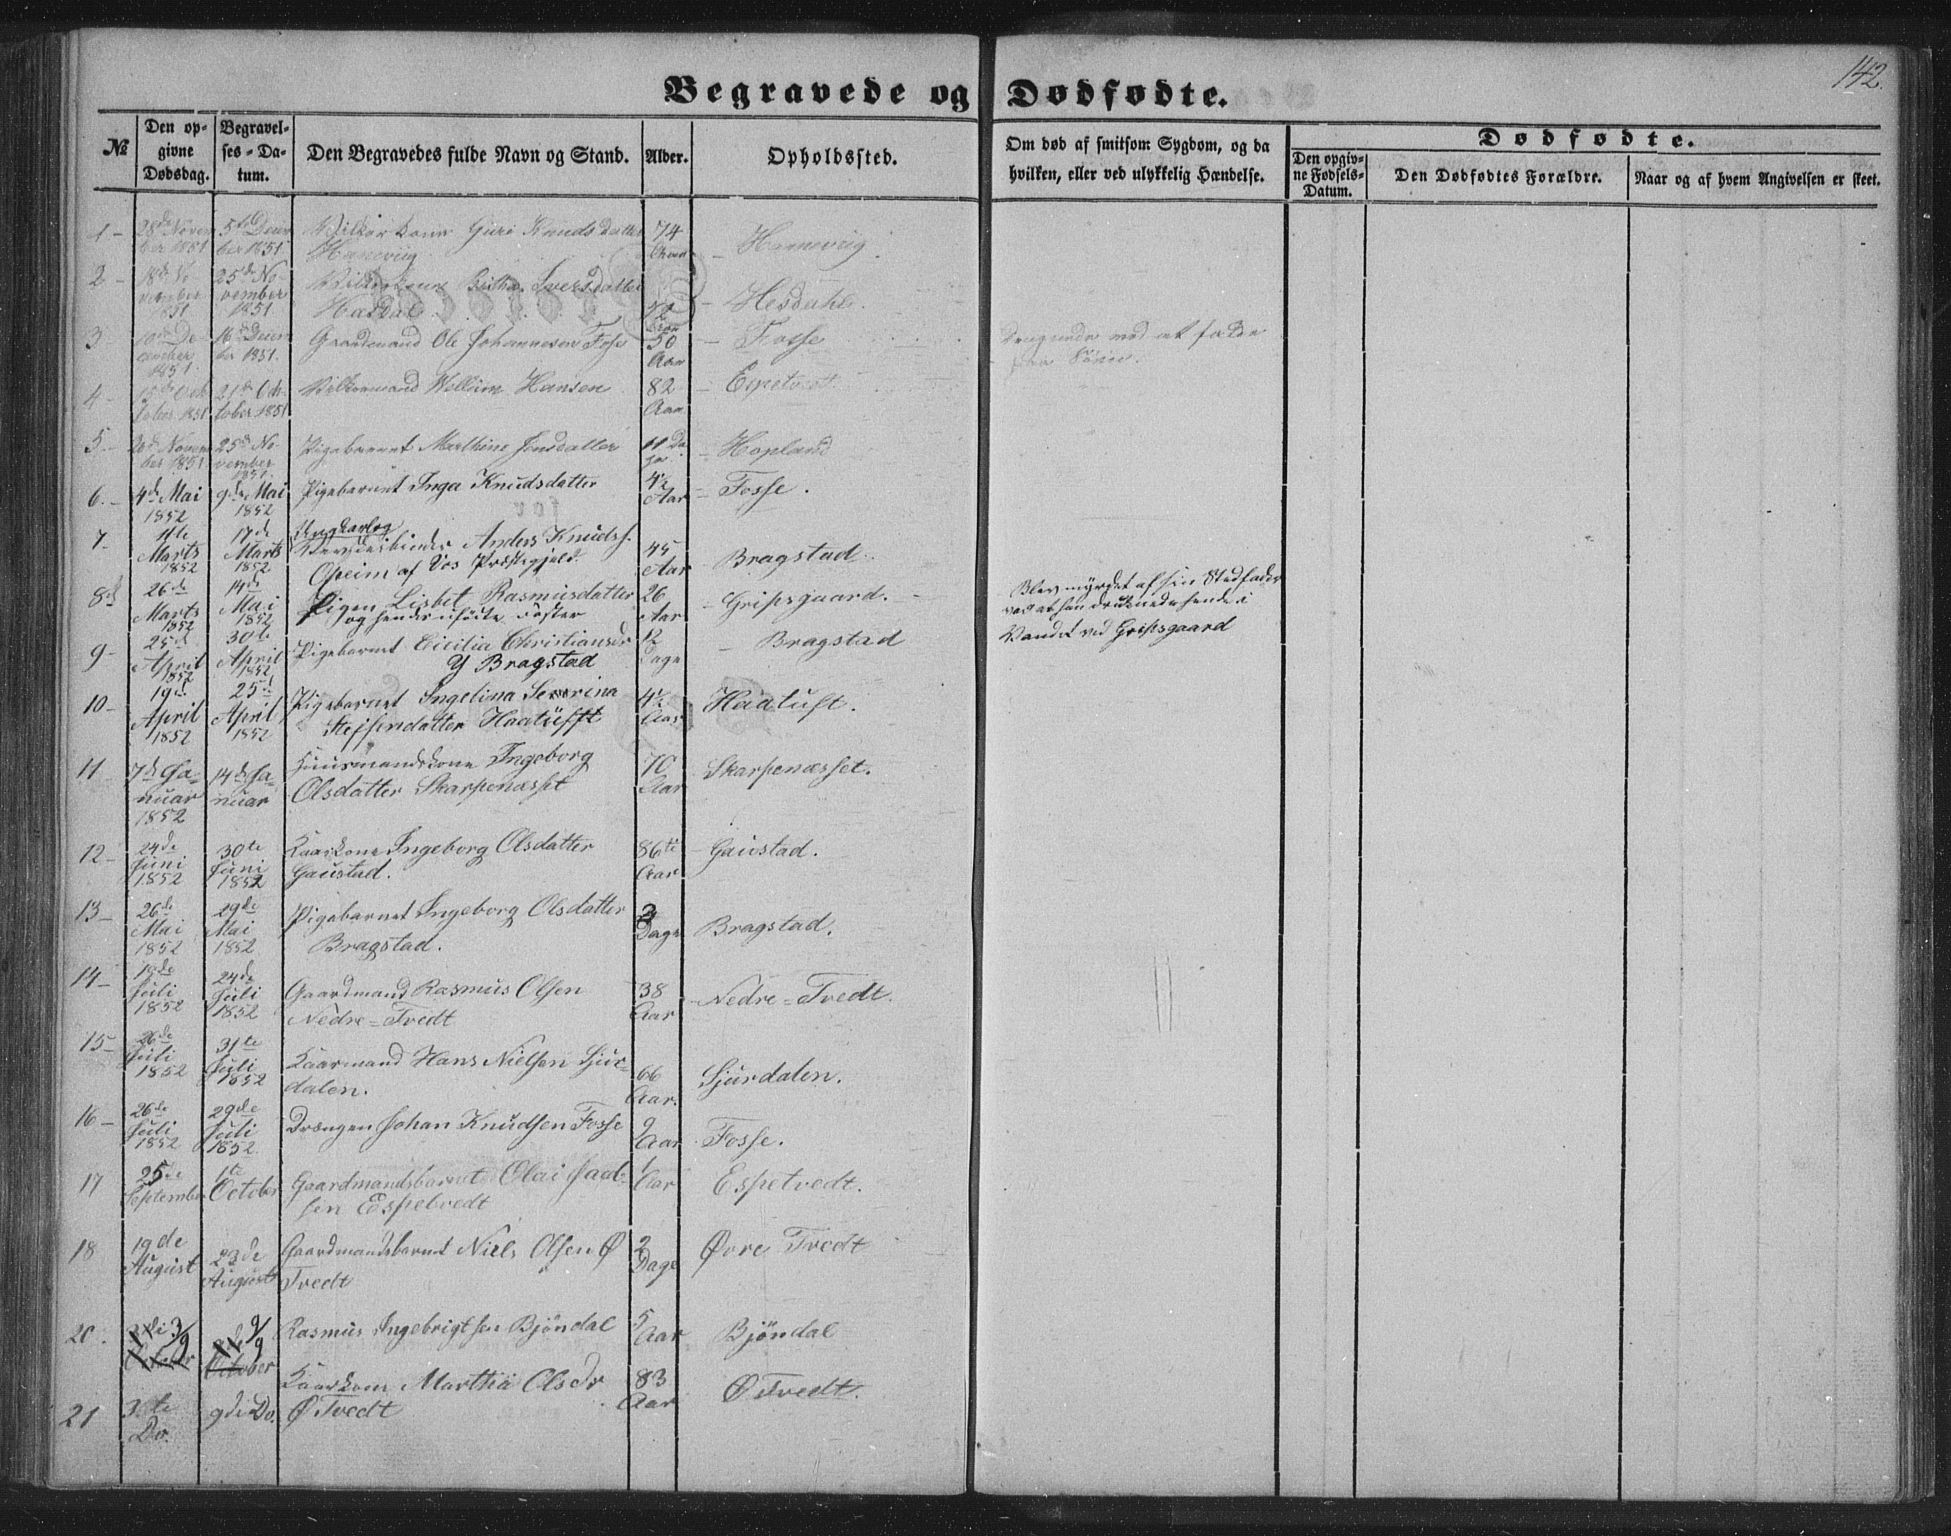 142.
Begravede og Dødfødte.
№
Den opgivne Dødsdag.
Begravelses-Datum.
Den Begravedes fulde Navn og Stand.
Alder.
Opholdssted.
Om død af smitsom Sygdom, og da hvilken, eller ved ulykkelig Hændelse.
Dødfødte.
Den opgivne Fødsels-Datum.
Den Dødfødtes Forældre.
Naar og af hvem Angivelsen er skeet.
1 - 28de November 1851 5te December 1851 Vilkårkone Guri Knudsdatter 74
Hanevig Aar - Hanevig
2 - 18de November 1851 25de November 1851 Vilkårkone Iversdatter
Hasdal 72 Aar - Hesdahl
3 10de December 1851. 16de December 1851. Gaardmand Ole Johannesen Fosse 50 Aar - Fosse
Druknede ved at falde
4 - 15de October 1851 21de October 1851 Vilkårmand Wellum Hansen 82 Aar - Espetvedt
5 - November 1851 25de November 1851. Pigebarnet Marthine Jonsdatter 11 Dage - Hopland
6. - 4de Mai 1852 9de Mai 1852 Pigebarnet Inga Knudsdatter 4½ Aar - Fosse.
7 - 11te Marts 1852 17de Marts 1852 Ungkarl og
Anders Knuds.
Opeim af Vos Præstegjeld 45 Aar - Bragstad.
8 26de Marts 1852 14de Mai 1852 Pigen Lisbet Rasmusdatter 26 Aar - Gripsgaard. -
og hendes ufödte Foster
Blev myrdet af sin Stedfader
ved at han druknede hende i
Vandet ved Gripsgaard
9 - 25de April 1852 30te April 1852 Pigebarnet Cicilia Christiansdr
Y Bragstad 12 Dage - Bragstad
10 - 19de April 1852 25de April 1852 Pigebarnet Ingelina Severina
Steffensdatter Haatufft 4½ Aar - Haatuft.
11 7de Januar 1852 14de Januar Huusmandskone Ingeborg
Olsdatter Skarpenæsset 70 Aar Skarpenæsset.
12 - 24de Juni 1852 30te Juni 1852 Kaarkone Ingeborg Olsdatter
Gaustad. 86te Aar - Gaustad.
13 - 26de Mai 1852 29de Mai 1852 Pigebarnet Ingeborg Olsdatter
Bragstad. 3 Dage - Bragstad.
14 - 19de Juli 1852 24de Juli 1852 Gaardmand Rasmus Olsen
Nedre-Tvedt 38 Aar - Nedre-Tvedt.
15 - 26de Juli 1852 31te Juli 1852 Kaarmand Hans Nielsen Sjur-
dalen. 66 Aar. Sjurdalen.
16 - 26de Juli 1852 29de Juli 1852 Drængen Johan Knudsen Fosse 9 Aar Fosse.
17 25de September 1te October Gaardmandsbarnet Olai
sen Espetvedt 1 Aar Espetvedt.
18 19de August 23de August Gaardmandsbarnet Niels Olsen Ø
Tvedt 2 Dage Øvre Tvedt
20. 3/9 October 9/9 October Rasmus Ingebrigtsen Bjöndal 5 Aar Bjöndal
21 3te Do. 9de Do. Kaarkone Martha Olsdr
Ø Tvedt 83 Aar Ø Tvedt.